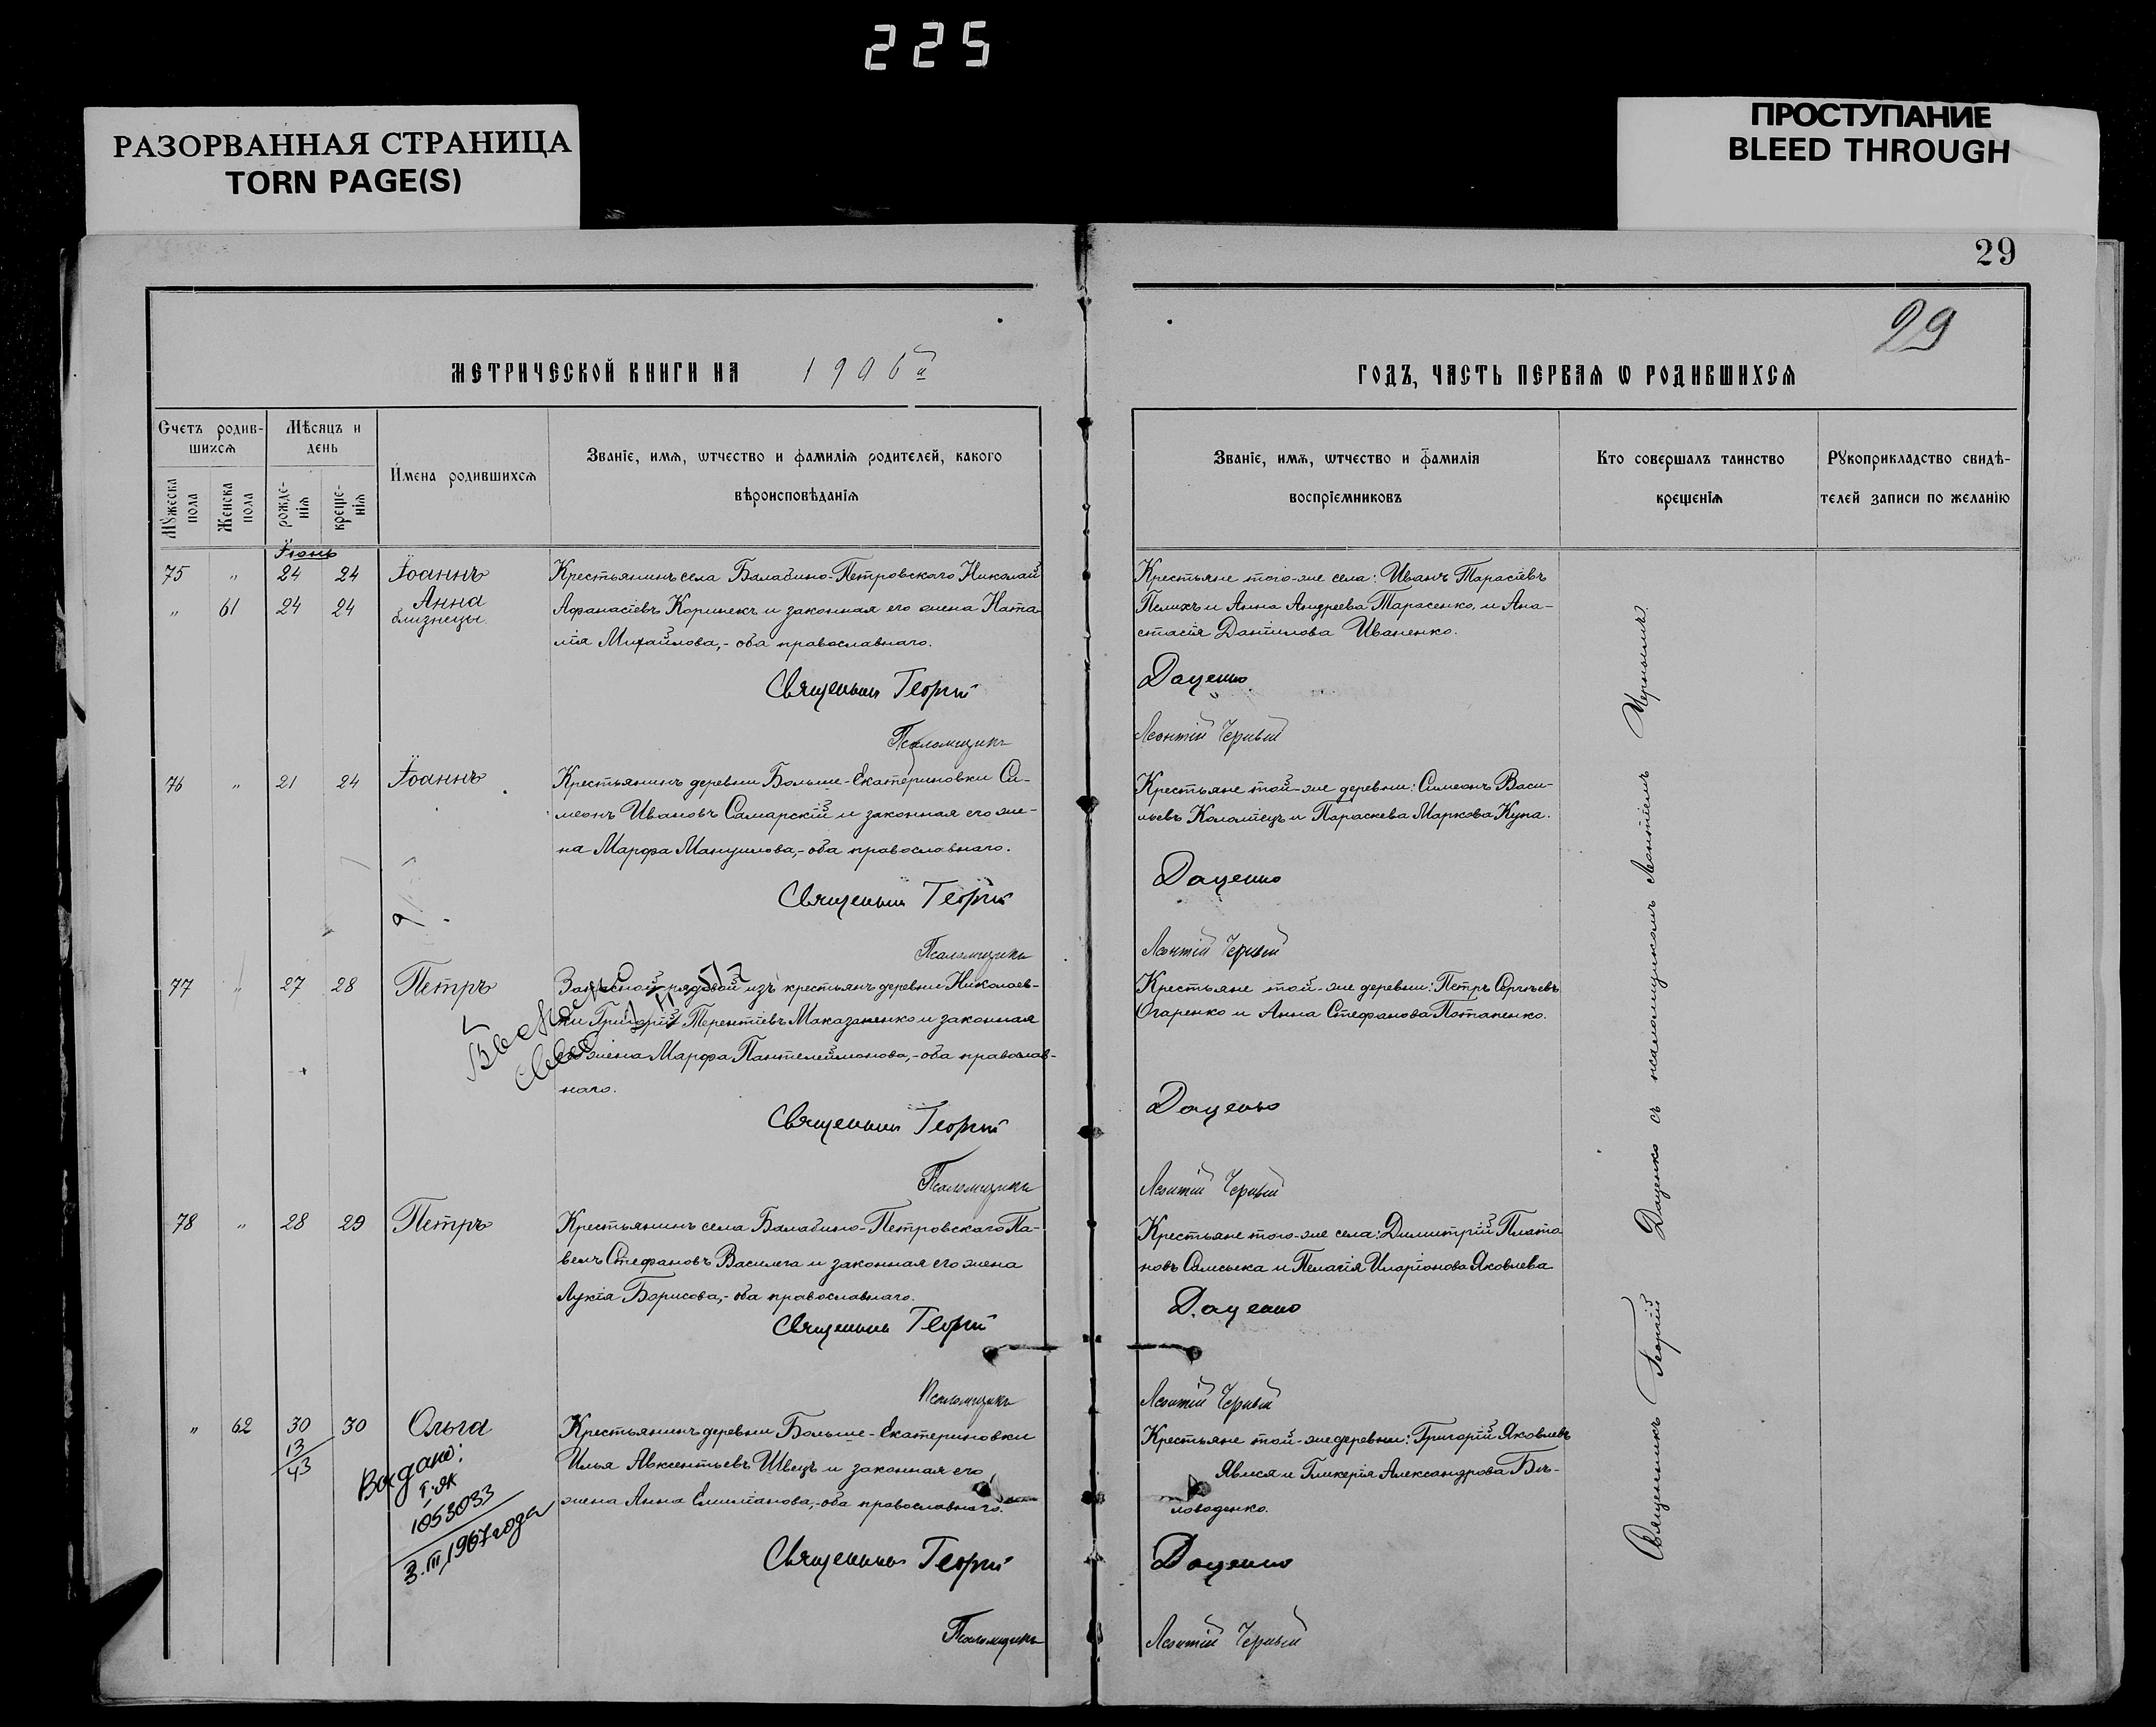 225
РАЗОРВАННАЯ СТРАНИЦА
TORN PAGE(S)
ПРОСТУПАНИЕ
BLEED THROUGH
29
29
МЕТРИЧЕСКОЙ КНИГИ НА 1906й
ГОДЪ, ЧАСТЬ ПЕРВАѦ Ѡ РОДИВШИХСѦ
Счетъ родив-
шихсѧ
Мѣсяцъ и
день
Имена родившихсѧ
Званіе, имѧ, ѡтчество и фамиліѧ родителей, какого
вѣроисповѣданіѧ
Мужеска
пола
Женска
пола
рожде-
ніѧ
креще-
ніѧ
Званіе, имѧ, ѡтчество и фамиліѧ
воспріемниковъ
Кто совершалъ таинство
крещеніѧ
Рукоприкладство свидѣ-
телей записи по желанію
Іюнь
75 " 24 24 Іоаннъ
" 61 24 24 Анна
близнецы
Крестьянинъ села Балабино-Петровскаго Николай
Афанасіевъ Коринекъ и законная его жена Ната-
лія Михайлова,- оба православнаго.
Священникъ Георгій
Псаломщикъ
Крестьяне того-же села: Иванъ Тарасіевъ
Пелихъ и Анна Андреева Тарасенко, и Ана-
стасія Данілова Иваненко.
Даценко
Леонтій Черный
76 " 21 24 Іоаннъ
Крестьянинъ деревни Больше-Екатериновки Си-
меонъ Ивановъ Самарскій и законная его же-
на Марфа Мануилова,- оба православнаго.
Священникъ Георгій
Псаломщикъ
Крестьяне той-же деревни: Симеонъ Васи-
льевъ Коломіецъ и Параскева Маркова Купа.
Даценко
Леонтій Черный
77 " 27 28 Петръ
Запасной рядовой изъ крестьянъ деревни Николаев-
ки Григорій Терентіевъ Маказаненко и законная
его жена Марфа Пантелеймонова,- оба православ-
наго.
Священникъ Георгій
Псаломщикъ
Крестьяне той-же деревни: Петръ Сергѣевъ
Огаренко и Анна Стефанова Потапенко.
Даценко
Леонтій Черный
78 " 28 29 Петръ
Крестьянинъ села Балабино-Петровскаго Па-
велъ Стефановъ Василега и законная его жена
Лукія Борисова,- оба православнаго.
Священникъ Георгій
Псаломщикъ
Крестьяне того-же села: Димитрій Плато-
новъ и Пелагія Иларіонова Яковлева
Даценко
Леонтій Черный
" 62 30 30 Ольга
13
43
Выдано:
I-ЯК
1053033
3.III.1967 года
Крестьянинъ деревни Больше-Екатериновки
Илья Авксентьевъ Швецъ и законная его
жена Анна Емиліанова,- оба православнаго.
Священникъ Георгій
Псаломщикъ
Крестьяне той-же деревни: Григорій Яковлевъ
и Гликерія Александрова Бѣ-
ловоденко.
Даценко
Леонтій Черный
Священникъ Георгій Даценко съ псаломщикомъ Леонтіемъ Чернымъ.